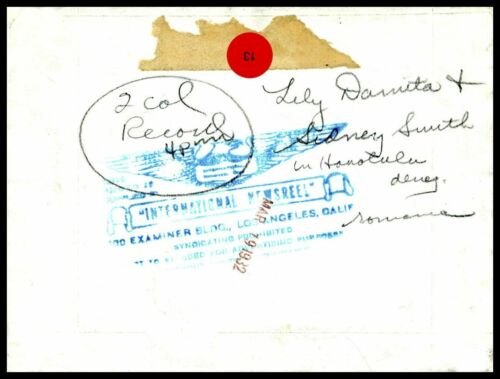 13
2 col
Record
4pm
Lily Damita +
Sidney Smith
in Honolulu
deny
romance
"INTERNATIONAL NEWSREEL"
EXAMINER BLDG., LOS ANGELES, CALIF
SYNDICATING PROHIBITED
USED FOR ADVERTISING PURPOSES
MAR 19 1932